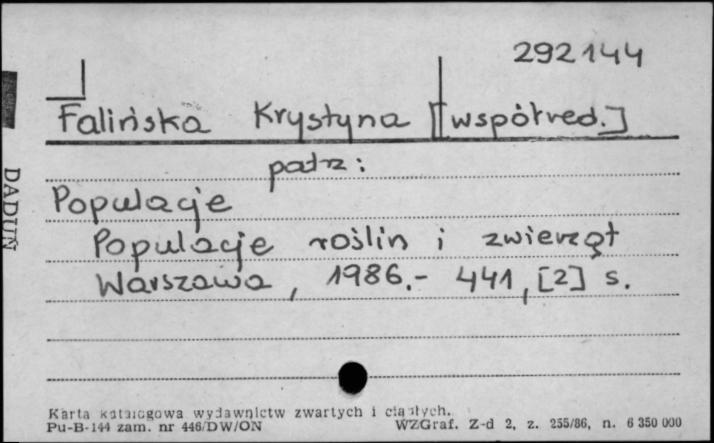 292144
Falińska Krystyna [współred.]
patrz:
Populacje
Populacje roślin i zwierząt
Warszawa, 1986.- 441, [2] s.
DADUŃ
Karta katalogowa wydawnictw zwartych i ciągłych.
Pu-B-144 zam. nr 446/DW/ON
WZGraf. Z-d 2, z. 255/86, n. 6 350 000